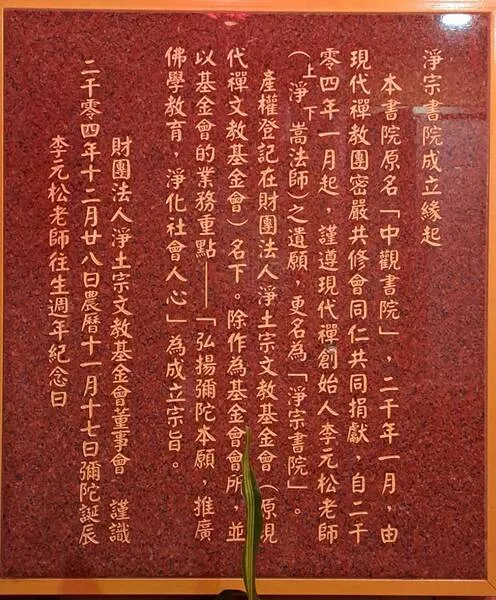 淨宗書院成立緣起
本書院原名「中觀書院」，二千年一月，由
現代禪教團密嚴共修會同仁共同捐獻，自二千
零四年一月起，謹遵現代禪創始人李元松老師
（上淨下嵩法師）之遺願，更名為「淨宗書院」。
產權登記在財團法人淨土宗文教基金會（原現
代禪文教基金會）名下。除作為基金會會所，並
以基金會的業務重點——「弘揚彌陀本願，推廣
佛學教育，淨化社會人心」為成立宗旨。
財團法人淨土宗文教基金會董事會　謹識
二千零四年十二月廿八日農曆十一月十七日彌陀誕辰
李元松老師往生週年紀念日